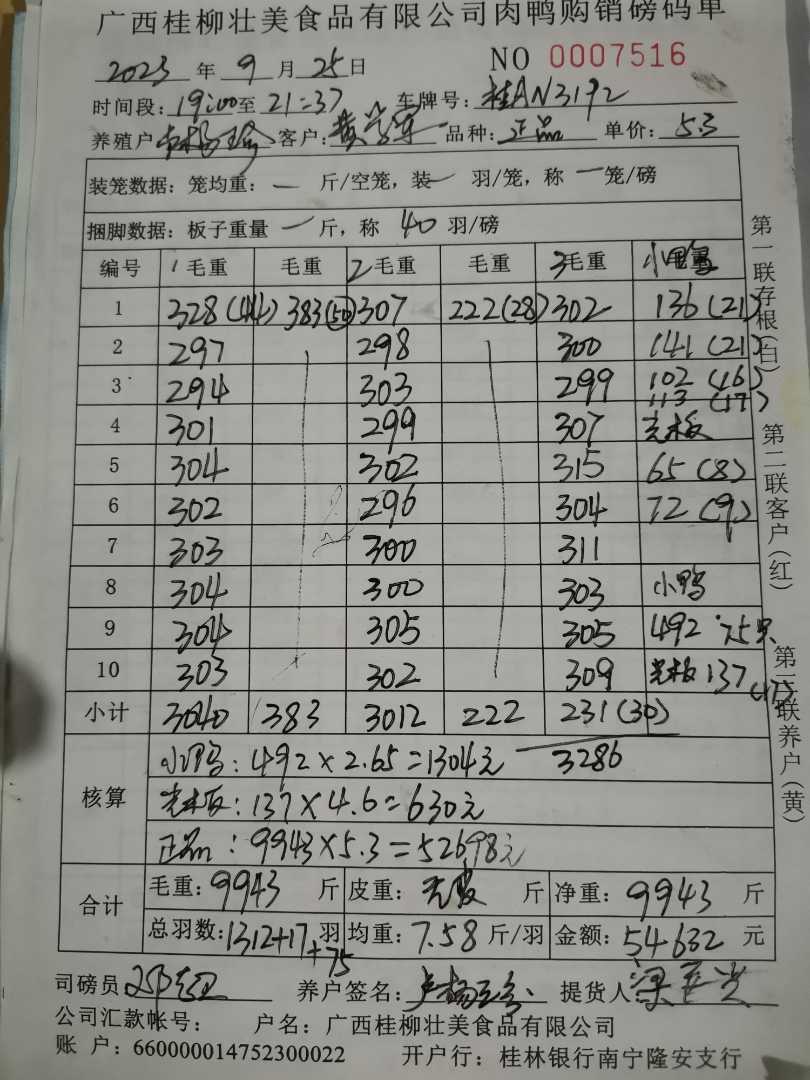 广西桂柳壮美食品有限公司肉鸭购销磅码单
NO 0007516
2023 年 9 月 25 日
时间段: 19:00 至 21:37 车牌号: 桂AN3192
养殖户 客户: 品种: 正品 单价: 5.3
装笼数据: 笼均重: 一 斤/空笼, 装一 羽/笼, 称 一笼/磅
捆脚数据: 板子重量 一 斤, 称 40 羽/磅
编号 1毛重 毛重 2毛重 毛重 3毛重 小鸭
1 328(44) 383(50) 307 222(28) 302 136(21)
2 297 298 300 141(21)
3 294 303 299 102(16)
113(17)
4 301 299 307 光板
5 304 302 315 65(8)
6 302 296 304 72(9)
7 303 300 311
8 304 300 303 小鸭
9 304 305 305 492 75只
10 303 302 309 光板 137(17)
小计 3040 383 3012 222 231(30)
3286
核算
小鸭: 492×2.65=1304元
光板: 137×4.6=630元
正品: 9943×5.3=52698元
合计
毛重: 9943 斤 皮重: 无皮 斤 净重: 9943 斤
总羽数: 1312+17+75 羽 均重: 7.58 斤/羽 金额: 54632 元
司磅员 养户签名: 提货人
公司汇款帐号: 户名: 广西桂柳壮美食品有限公司
账 户: 660000014752300022 开户行: 桂林银行南宁隆安支行
第一联存根(白) 第二联客户(红) 第三联养户(黄)